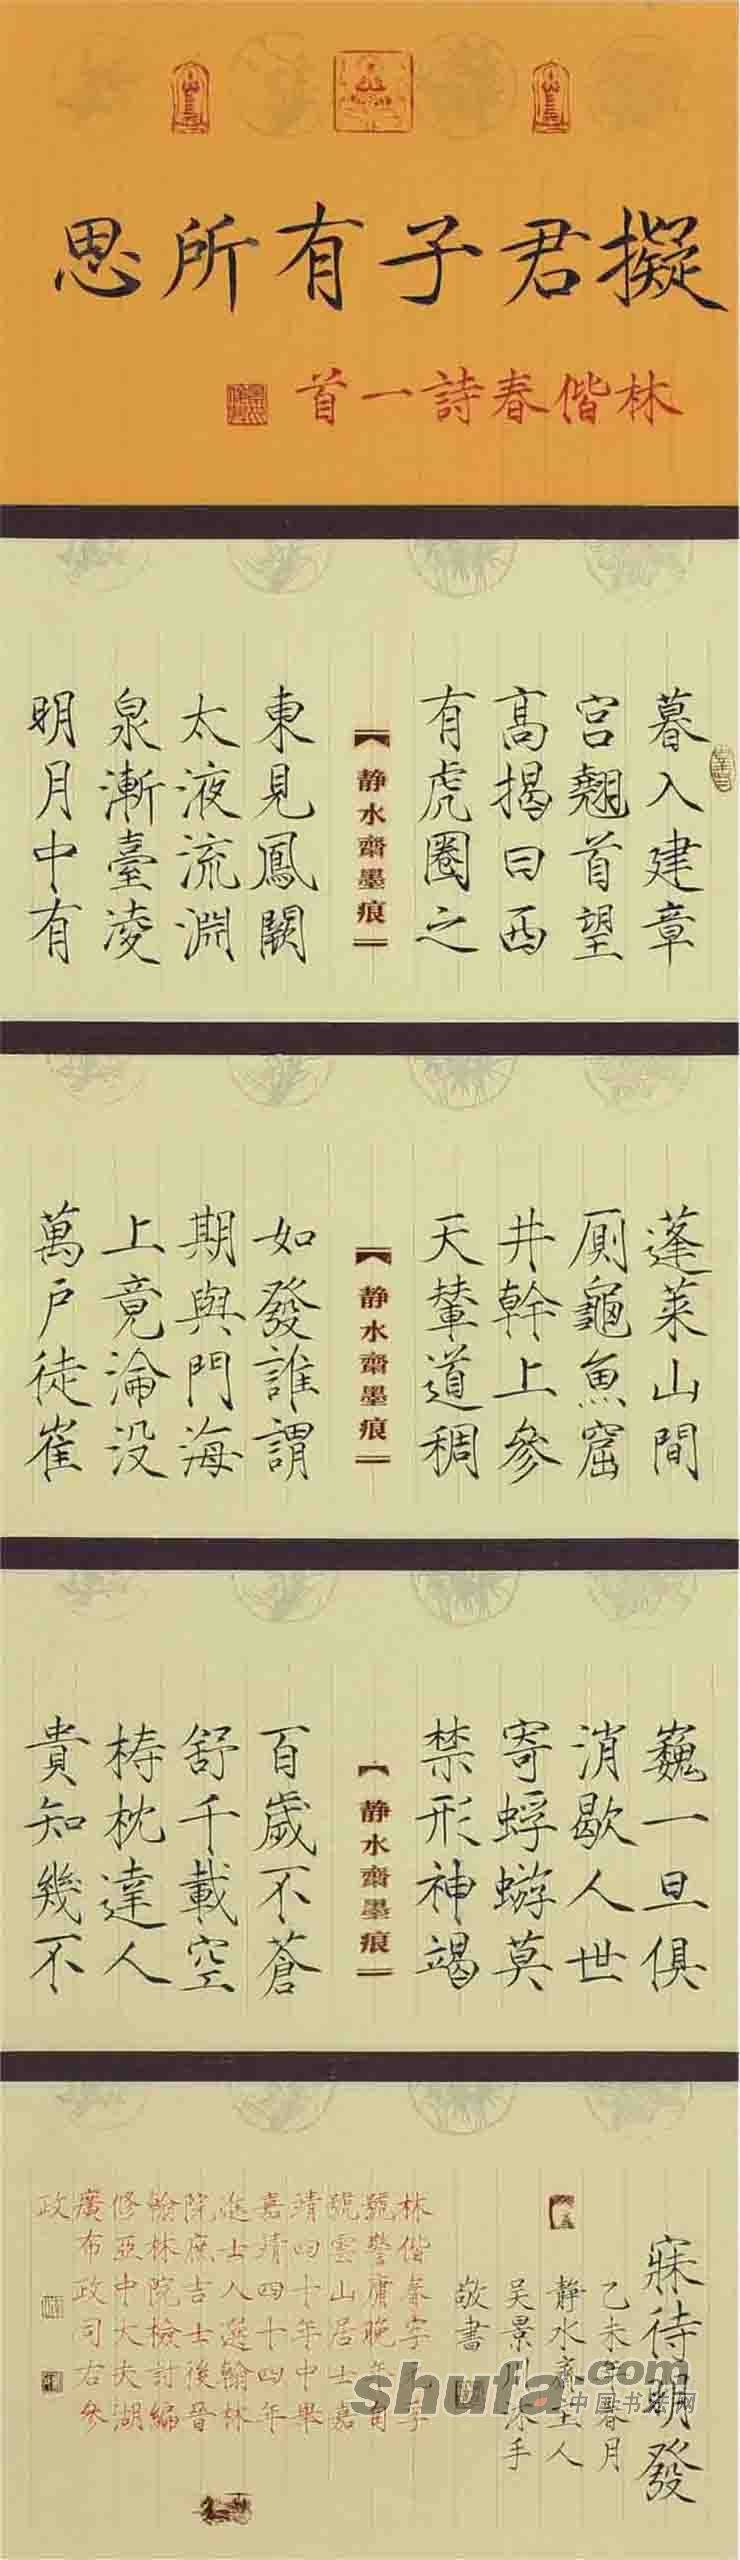 擬君子有所思
林偕春詩一首
暮入建章
宮翹首望
高揭曰西
有虎圈之
静水齋墨痕
東見鳳闕
太液流淵
泉漸臺凌
明月中有
蓬萊山間
厠龜魚窟
井幹上參
天輦道稠
静水齋墨痕
如發誰謂
期與門海
上竟淪没
萬户徒崔
巍一旦俱
消歇人世
寄蜉蝣莫
禁形神竭
静水齋墨痕
百歲不蒼
舒千載空
梼枕達人
貴知幾不
寐待明發
乙未年春月
静水齋主人
吴景川沐手
敬書
林偕春字
號警庸晚年自
號雲山居士嘉
靖四十年中舉
嘉靖四十四年
進士入選翰林
院庶吉士後晉
翰林院檢討編
修亞中大夫湖
廣布政司右參
政
shufa.com
中国书法网